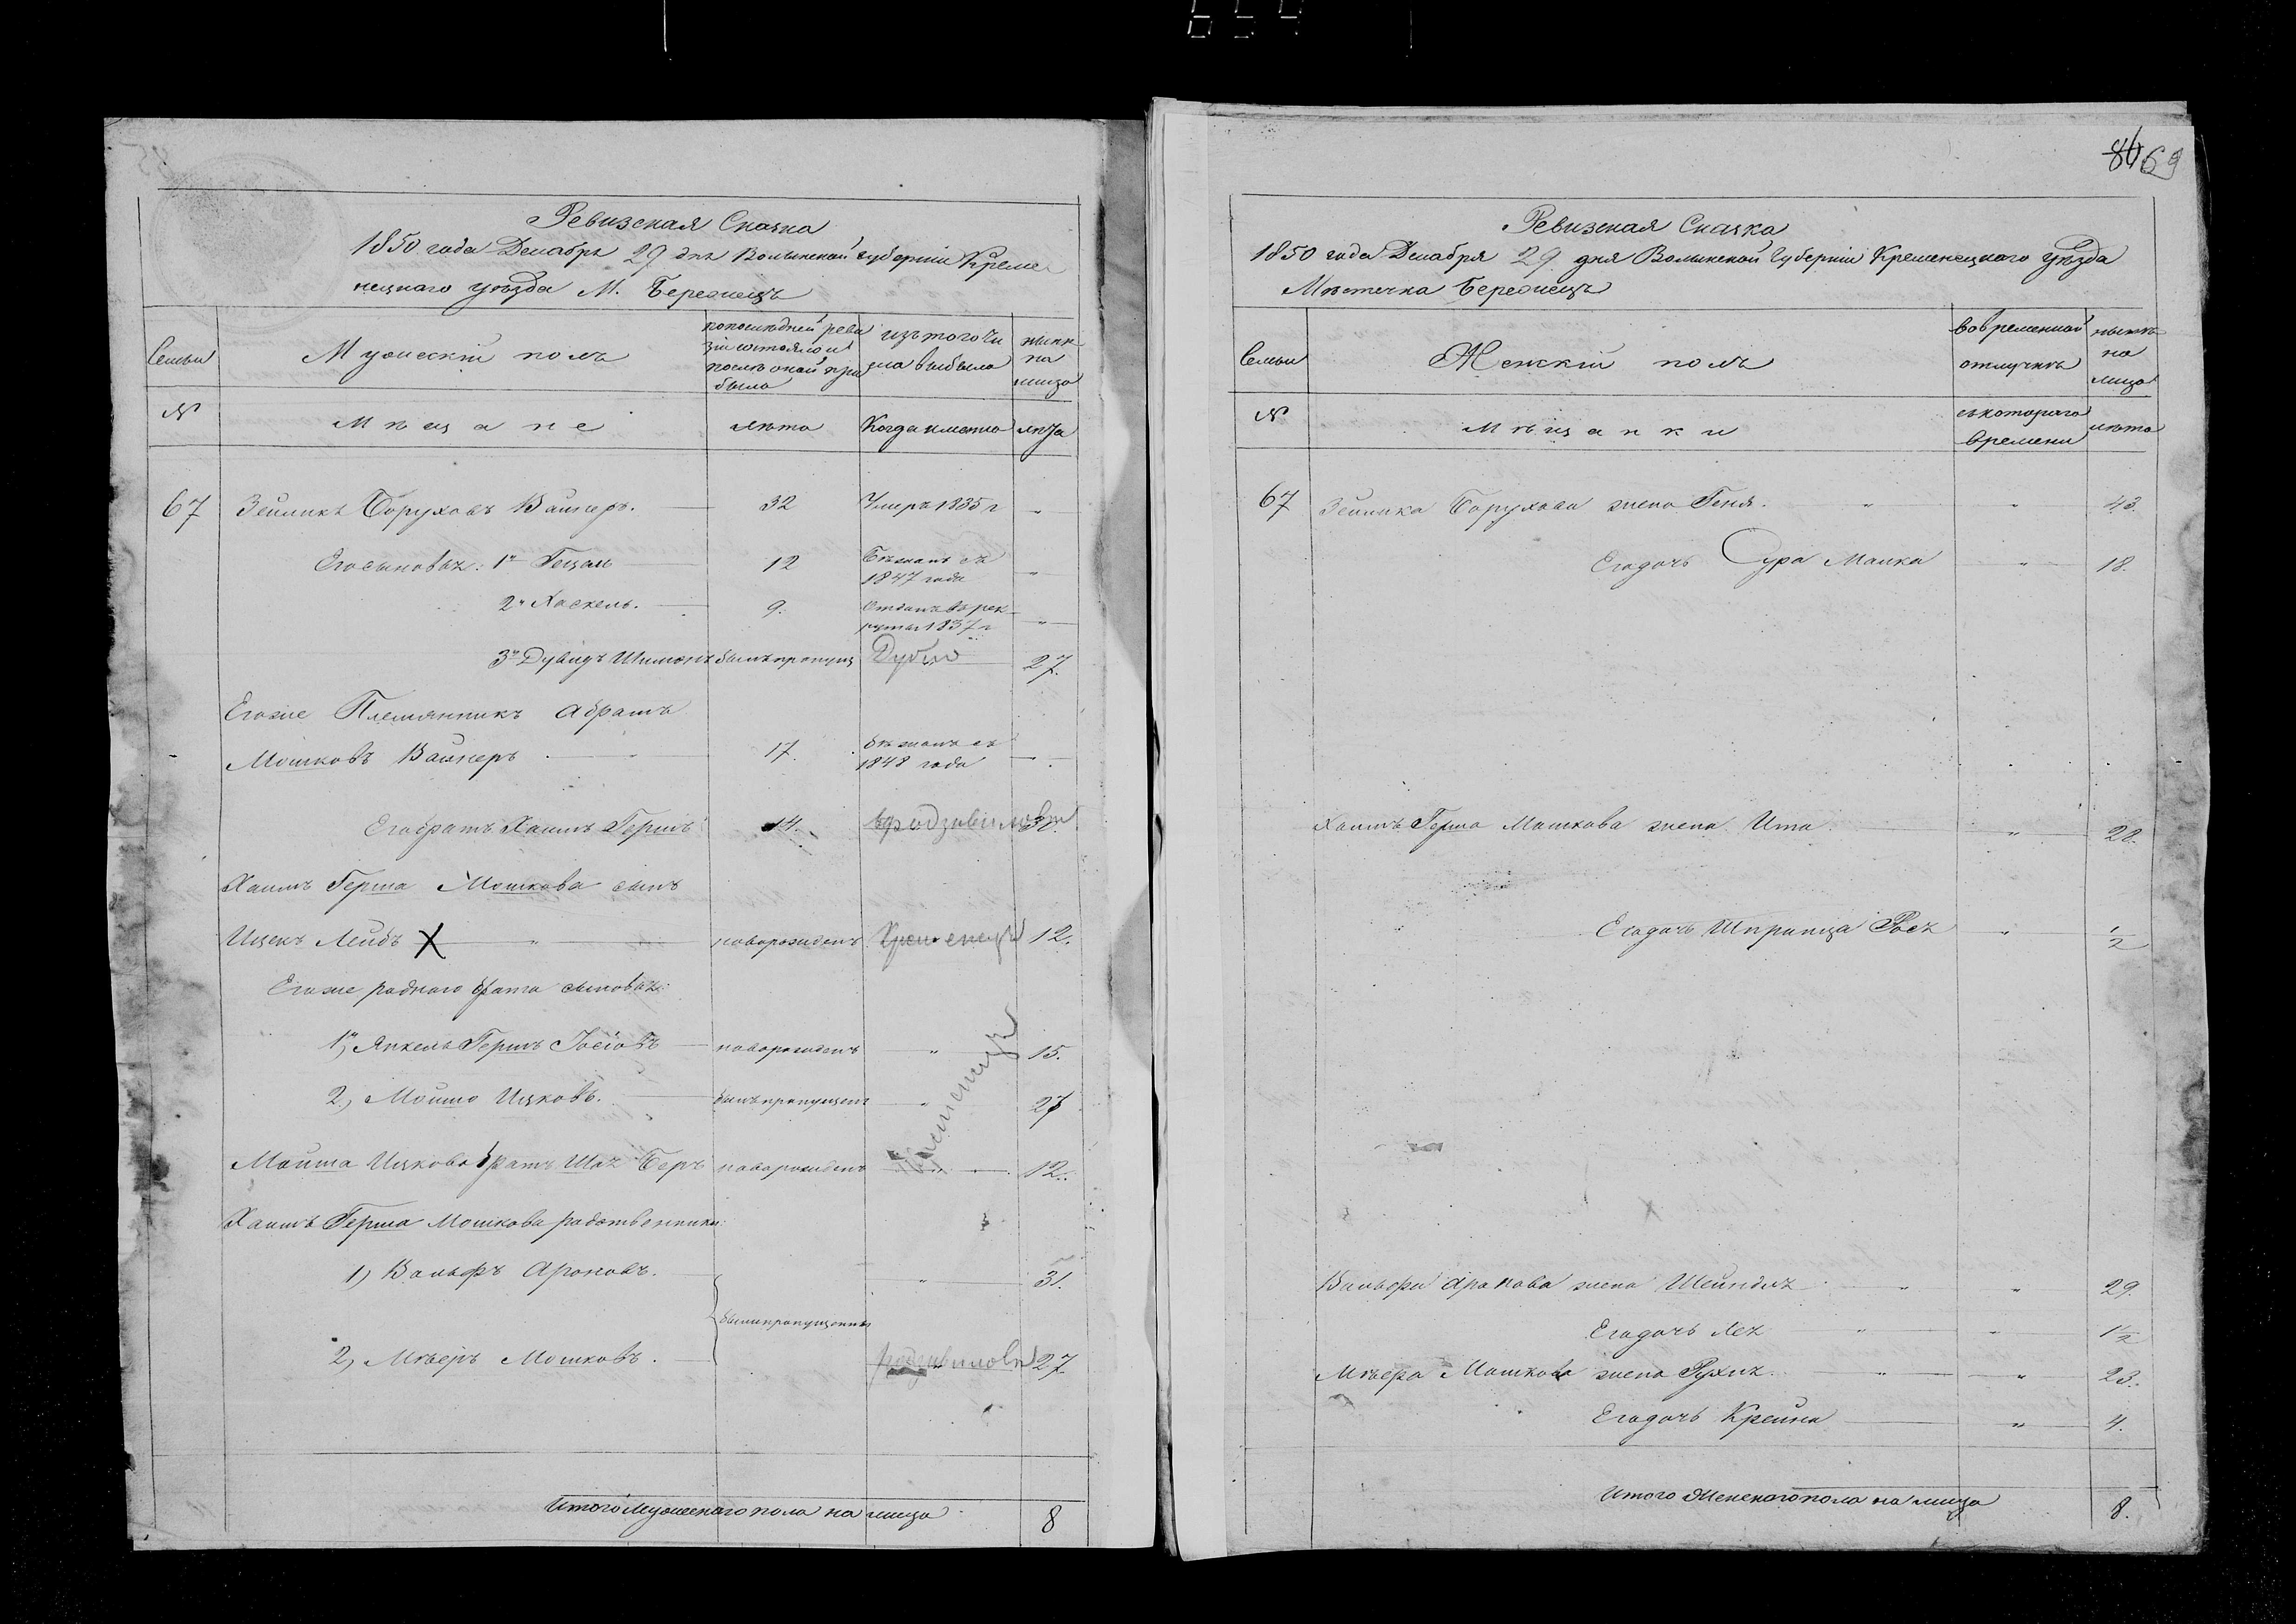 654
Ревизская Сказка
1850 года Декабря 29 дня Волынской губерніи Креме
нецкаго уѣзда М. Бережецъ
Семьи
Мужескій полъ
по послѣдней реви
зіи состояло и
послѣ оной при
было
изъ того чи
сла выбыло
нынѣ
на
лицо
№
Мѣщане
лѣта
Когда именно
лѣта
67 Зейликъ Боруховъ Вайнеръ. 32 Умеръ 1835 г „
Его сыновья: 1й Гецель 12 Бѣжалъ съ
1847 года „
2й Хаскель. 9. Отданъ въ рек
руты 1837 г „
3й Дувидъ Шимонъ былъ пропущ Дубно 27.
Егоже Племянникъ Абрамъ
Мошковъ Вайнеръ 17. бѣжалъ съ
1848 года
Его братъ Хаимъ Гершъ 14. в радзивиловѣ
Хаимъ Герша Мошкова сынъ
Ицекъ Лейбъ X „ новорожденъ Кременецъ 12.
Егоже роднаго брата сыновья:
1й, Янкель Гершъ Іосіовъ новорожденъ „ 15.
2, Мошко Ицковъ. былъ пропущенъ „ 27
Кременецъ
Мошка Ицкова братъ Шая Беръ новорожденъ „ 12.
Хаимъ Герша Мошкова родственники:
1, Вольфъ Ароновъ. „ 31.
были пропущены
2, Мѣеръ Мошковъ. радзивиловѣ 27
Итого Мужескаго пола на лицо 8
86 69
Ревизская Сказка
1850 года Декабря 29 дня Волынской Губерніи Кременецкаго уѣзда
Мѣстечка Бережецъ
Семьи
Женскій полъ
во временной
отлучкѣ
нынѣ
на
лицо
№
Мѣщанки
съ котораго
времени
лѣта
67 Зейлика Борухова жена Геня. „ „ 43.
Его дочь Сура Малка „ 18.
Хаимъ Герша Мошкова жена Ита „ 28.
Его дочь Шпринца Рося „ 1/2
Вольфа Аронова жена Шейндля „ „ 29.
Его дочь Лея „ „ 1 1/2
Мѣера Мошкова жена Рухля. „ „ 23.
Его дочь Крейна „ 4.
Итого Женскаго пола на лицо 8.